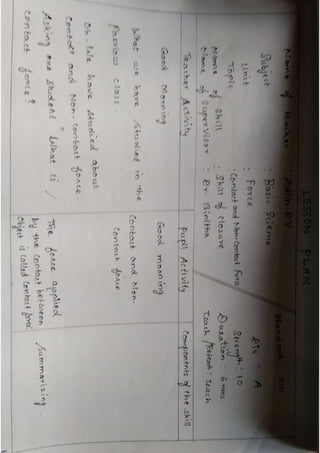 LESSON PLAN
Name of teacher : Adlin.R.V
Standard : VIII
Subject : Basic Science
Div : A
Unit : Force
Strength : 10
Topic : Contact and Non-Contact force
Duration : 6 mins
Name of Skill : Skill of closure
Teach /Reteach : Teach
Name of Supervisor : Dr. Binitha
Teacher Activity
Pupil Activity
Components of the skill
Good Morning
Good morning
What we have studied in the
previous class.
Contact and Non-
contact force
Ok. We have studied about
Contact and Non-contact force.
Asking one student "What is
contact force?
The force applied
by the contact between
Object is called contact force
/summarizing